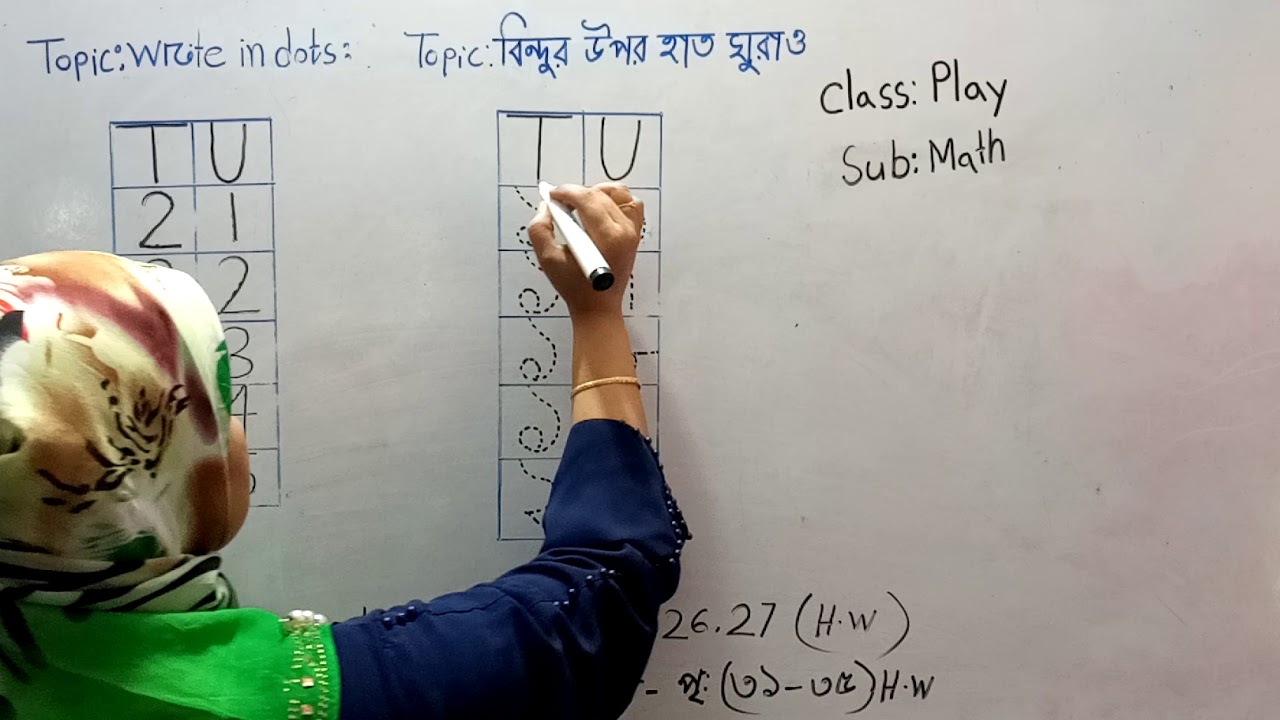 Topic: Write in dots:
Topic: বিন্দুর উপর হাত ঘুরাও
Class: Play
Sub: Math
T U
2 1
2
3
4
5
T U
26.27 (H.W)
- পৃ: (৩১-৩৫) H.W